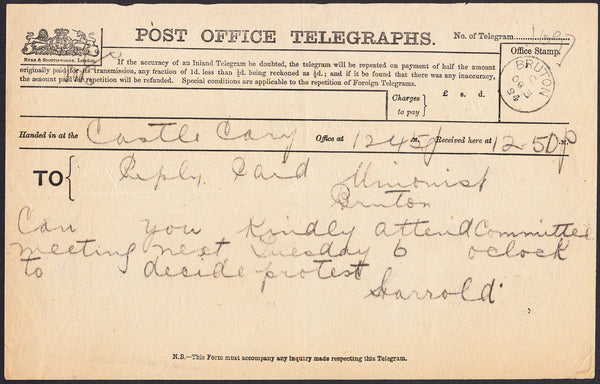 POST OFFICE TELEGRAPHS.
No. of Telegram
Office Stamp.
BRUTON
If the accuracy of an Inland Telegram be doubted, the telegram will be repeated on payment of half the amount
originally paid for its transmission, any fraction of 1d. less than ½d. being reckoned as ½d.; and if it be found that there was any inaccuracy,
the amount paid for repetition will be refunded. Special conditions are applicable to the repetition of Foreign Telegrams.
Charges to pay } £ s. d.
Handed in at the Castle Cary Office at 1245p M. Received here at 12.50p M.
TO { Reply Paid Unionist
Bruton
Can you Kindly attend Committee
meeting next Tuesday 6 oclock
to decide protest
Harrold
N.B.—This Form must accompany any inquiry made respecting this Telegram.